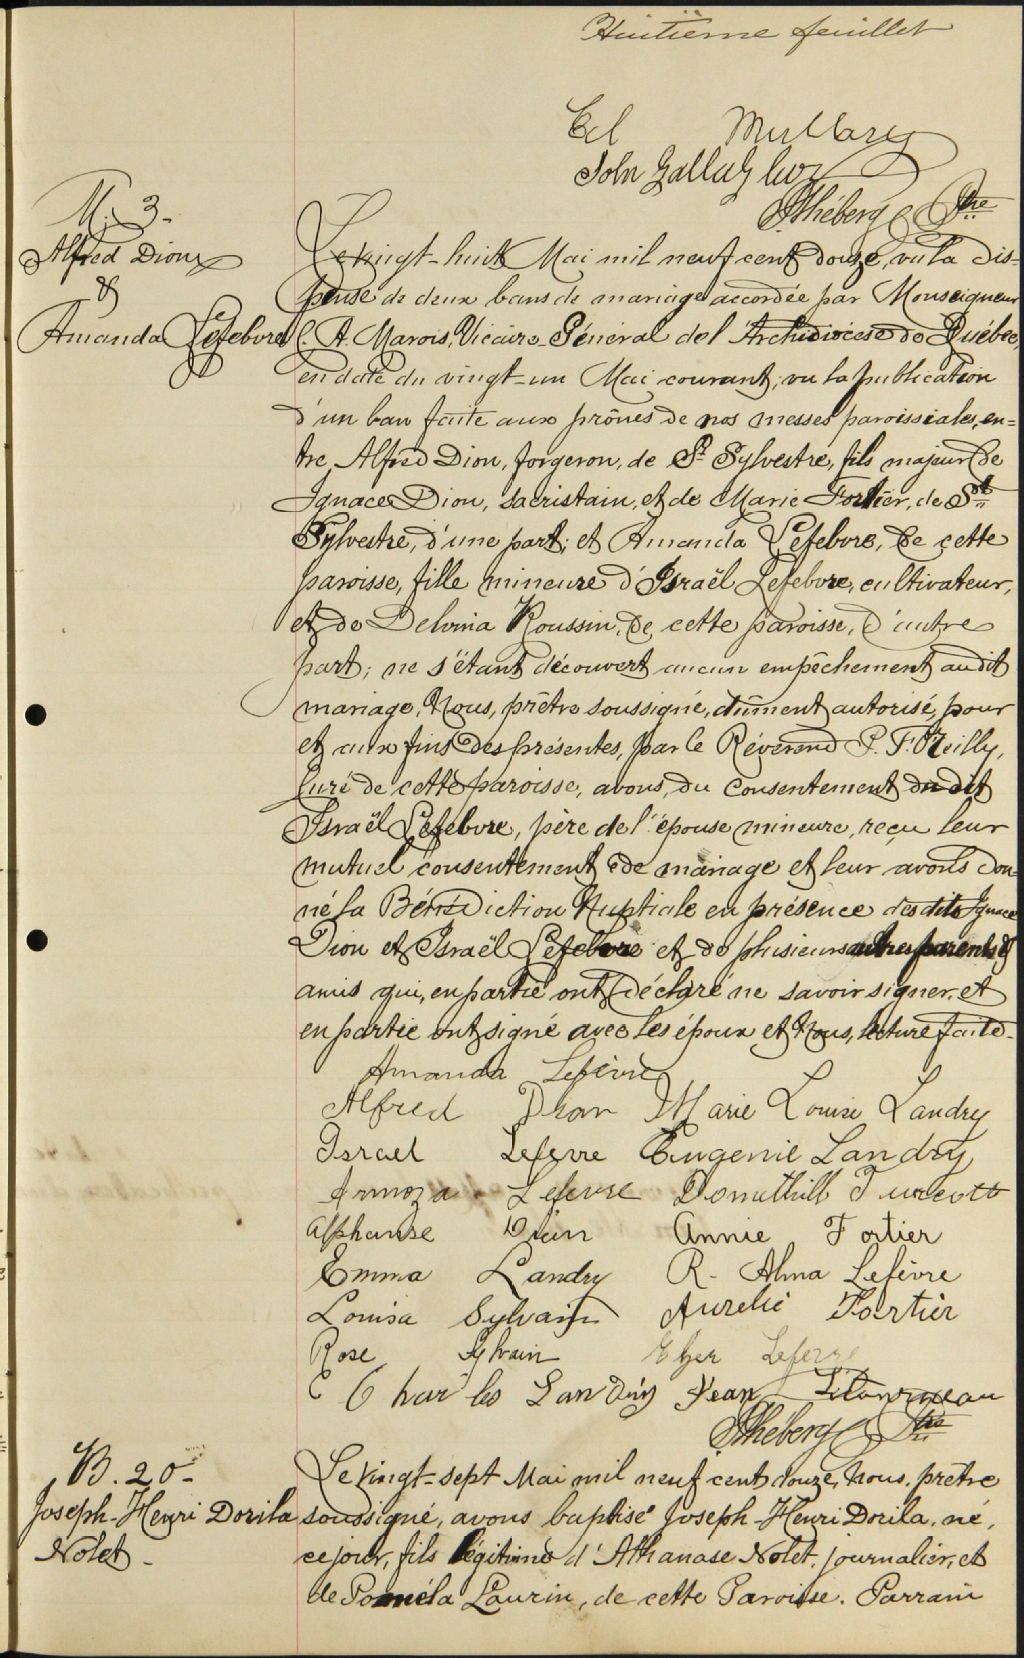 Huitième feuillet
Ed Mullary
John Gallagher
Théberge Ptre
M. 3-
Alfred Dion
&
Amanda Lefebvre
Le vingt-huit Mai mil neuf cent douze, vu la dis-
pense de deux bans de mariage accordée par Monseigneur
C. A. Marois, Vicaire Général de l'Archidiocèse de Québec,
en date du vingt-un Mai courant; vu la publication
d'un ban faite aux prônes de nos messes paroissiales, en-
tre Alfred Dion, forgeron, de St Sylvestre, fils majeur de
Ignace Dion, sacristain, et de Marie Fortier, de St
Sylvestre, d'une part; et Amanda Lefebvre, de cette
paroisse, fille mineure d'Israël Lefebvre, cultivateur,
et de Delvina Roussin, de cette paroisse, d'autre
part; ne s'étant découvert aucun empêchement au dit
mariage, Nous, prêtre soussigné, dûment autorisé, pour
et aux fins des présentes, par le Révérend P. F. O'Reilly,
Curé de cette paroisse, avons, du consentement du dit
Israël Lefebvre, père de l'épouse mineure, reçu leur
mutuel consentement de mariage et leur avons don-
né la Bénédiction Nuptiale en présence des dits Ignace
Dion et Israël Lefebvre et de plusieurs autres parents &
amis qui, en partie ont déclaré ne savoir signer, et
en partie ont signé avec les époux et Nous, lecture faite.
Amanda Lefèvre
Alfred Dion Marie Louise Landry
Israel Lefevre Eugenie Landry
Armoza Lefevre Domithill Turcott
Alphonse Dion Annie Fortier
Emma Landry R. Alma Lefèvre
Louisa Sylvain Aurelie Fortier
Rose Sylvain Lefevre
Charles Landry Jean Létourneau
Théberge Ptre
B. 20-
Joseph-Henri Dorila
Nolet-
Le vingt-sept Mai mil neuf cent douze, Nous, prêtre
soussigné, avons baptisé Joseph-Henri Dorila, né,
ce jour, fils légitime d'Athanase Nolet, journalier, et
de Paméla Laurin, de cette Paroisse. Parrain